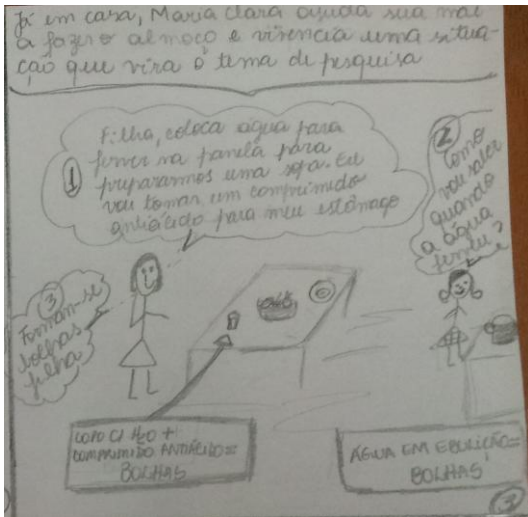 Já em casa, Maria Clara ajuda sua mãe
a fazer o almoço e vivencia uma situa-
ção que vira o tema de pesquisa
1
Filha, coloca água para
ferver na panela para
prepararmos uma sopa. Eu
vou tomar um comprimido
antiácido para meu estômago
2
Como
vou saber
quando
a água
ferveu?
3
Formam-se
bolhas
filha
COPO C/ H2O +
COMPRIMIDO ANTIÁCIDO =
BOLHAS
ÁGUA EM EBULIÇÃO =
BOLHAS
3